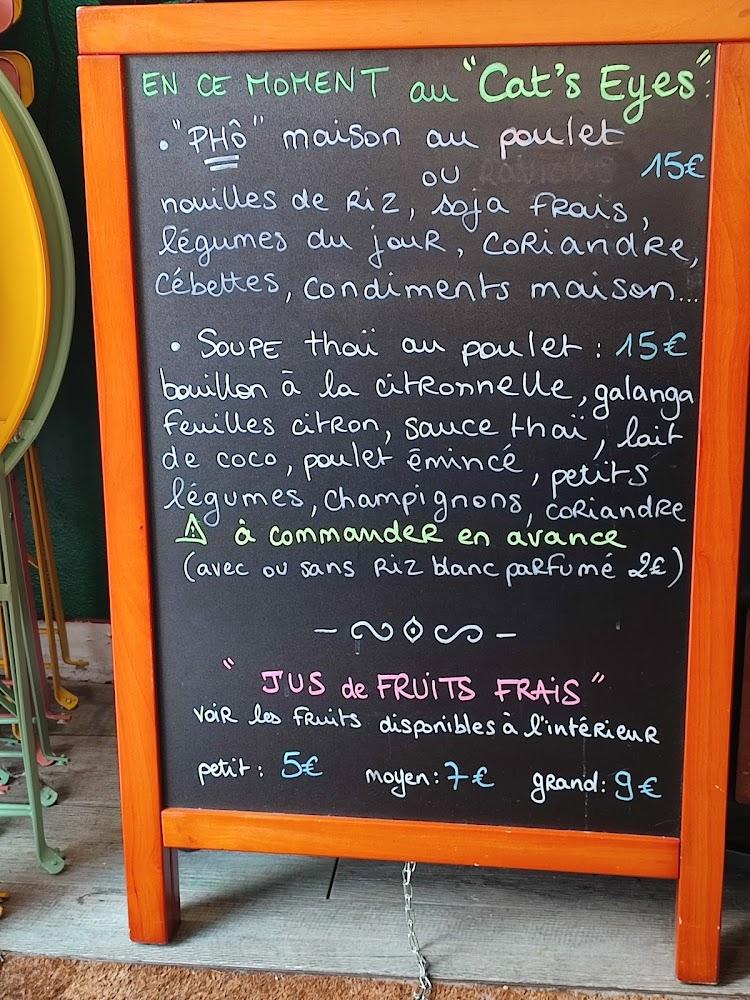 EN CE MOMENT au "Cat's Eyes":
• "PHÔ" maison au poulet
ou RAVIOLIS 15€
nouilles de RIZ, soja FRAIS,
légumes du jouR, CORiandRe,
cébettes, condiments maison...
• SOUPE thaï au poulet : 15€
bouillon à la citRonnelle, galanga
Feuilles citRon, sauce thaï, lait
de coco, poulet émincé, petits
légumes, champignons, coRiandRe
⚠ à commandeR en avance
(avec ou sans RiZ blanc paRFumé 2€)
" JUS de FRUITS FRAiS "
voiR les FRuits disponibles à l'intéRieuR
petit : 5€ moyen : 7€ gRand : 9€